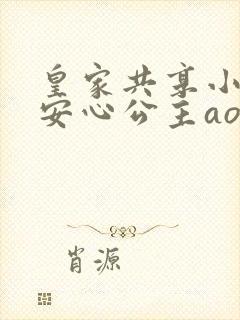 皇家共享小
安心公主ao
肖源